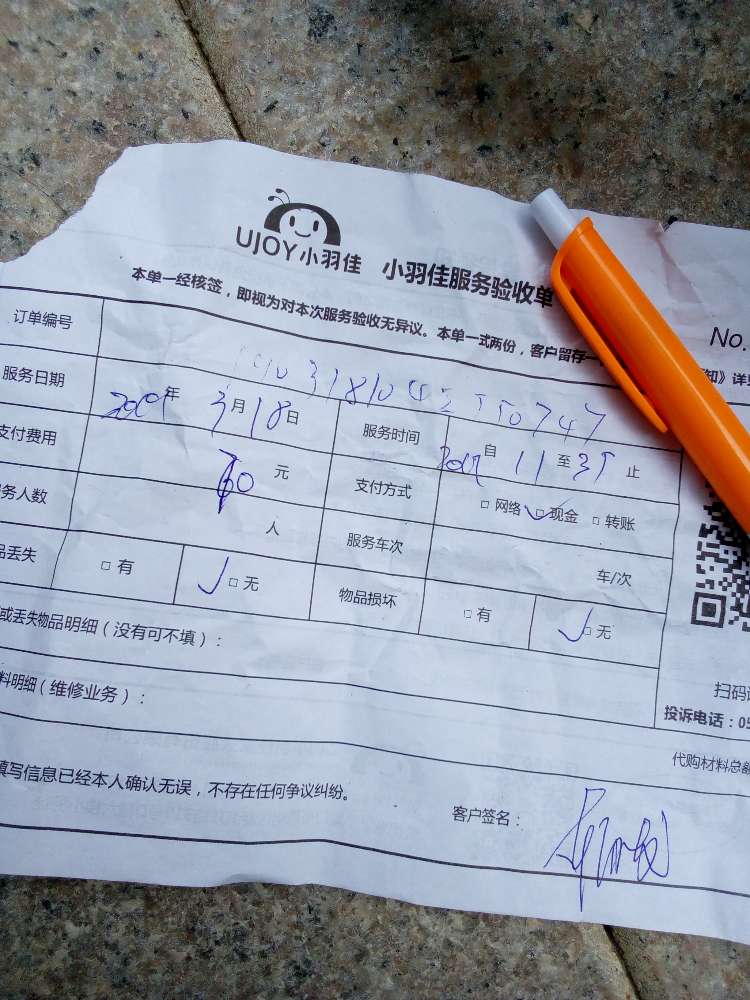 UJOY小羽佳 小羽佳服务验收单
本单一经核签，即视为对本次服务验收无异议。本单一式两份，客户留存一
No.
知》详见
订单编号
服务日期 年 3月18日 服务时间 自 11 至 35 止
支付费用 元 支付方式 □ 网络 □ 现金 □ 转账
务人数 人 服务车次 车/次
品丢失 □ 有 □ 无 物品损坏 □ 有 □ 无
或丢失物品明细（没有可不填）：
扫码
料明细（维修业务）：
投诉电话：05
代购材料总额
填写信息已经本人确认无误，不存在任何争议纠纷。
客户签名：